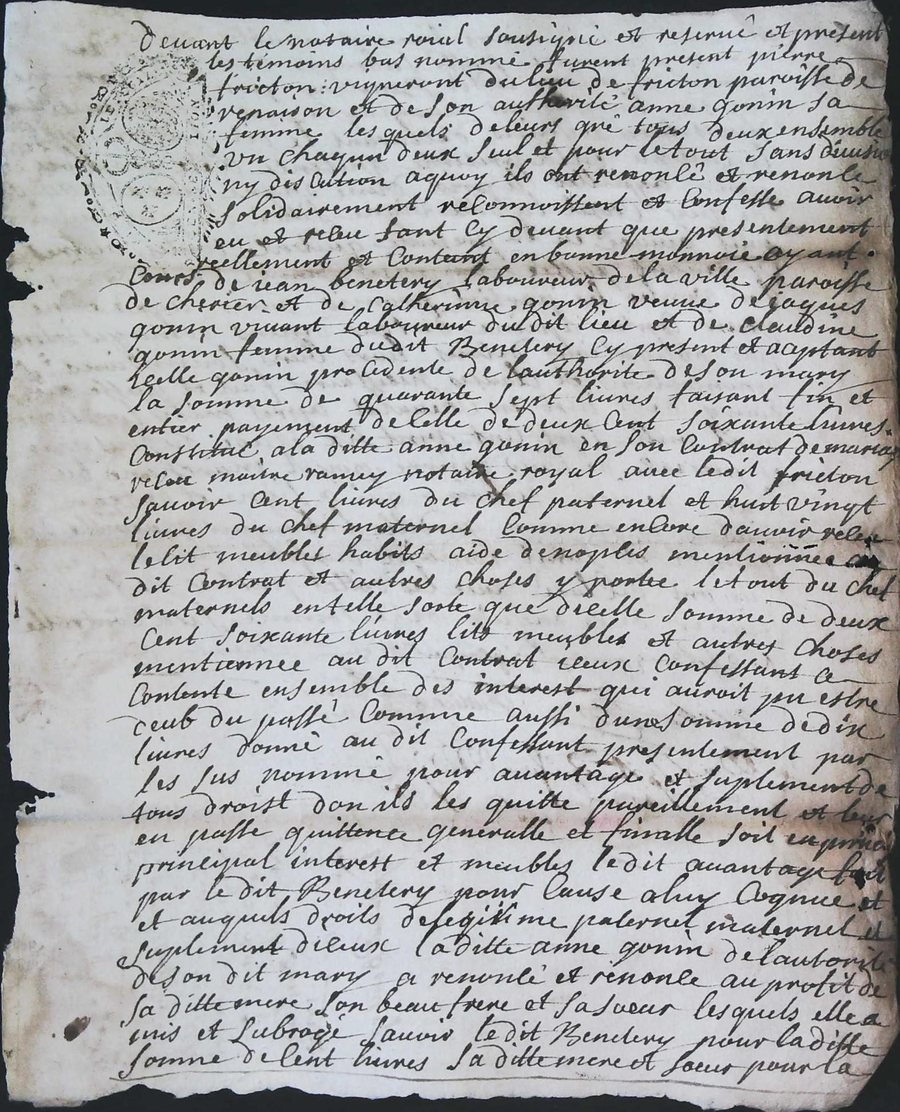 devant le notaire roial sousigné et reservé et present
les temoins bas nommé furent present pierre
fricton vigneront du lieu de fricton paroisse de
renaison et de son authorité anne gonin sa
femme lesquels de leurs gré tous deux ensemble
un chaqun deux seul et pour le tout sans division
ny discution aquoy ils ont renoncé et renonce
solidairement reconnoissent et confesse avoir
eu et receu tant cy devant que presentement
reellement et contant en bonne monnoie ayant
cours de iean benetery laboureur de la ville paroisse
de cherier et de catherinne gonin veuve de jaques
gonin vivant laboureur du dit lieu et de claudine
gonin femme dudit Benetery cy present et aceptant
icelle gonin procedente de lauthorité de son mary
la somme de quarante sept livres faisant fin et
entier payement de celle de deux cent soixante livres
constitué a la ditte anne gonin en son contrat de mariage
receu maitre ramey notaire royal avec ledit fricton
savoir cent livres du chef paternel et huit vingt
livres du chef maternel comme encore davoir receu
le lit meubles habits aide denopces mentionnée au
dit contrat et autres choses y portée le tout du chef
maternels en telle sorte que dicelle somme de deux
cent soixante livres lits meubles et autres choses
mentionnée au dit contrat iceux confessant ce
contente ensemble des interest qui auroit pu estre
ceub du passé comme aussi dune somme de dix
livres donné au dit confessant presentement par
les sus nommé pour avantage et suplement de
tous droist don ils les quitte pareillement et leur
en passe quittence generalle et finalle soit en
principal interest et meubles ledit avantage fait
par ledit Benetery pour cause a luy cognue et
et auquels droits delegitime paternel maternel et
suplement diceux la ditte anne gonin de lautorité
de son dit mary a renoncé et renonce au profit de
sa ditte mere son beau frere et sa soeur lesquels elle a
mis et subrogé savoir ledit Benetery pour la ditte
somme de cent livres sa ditte mere et soeur pour la